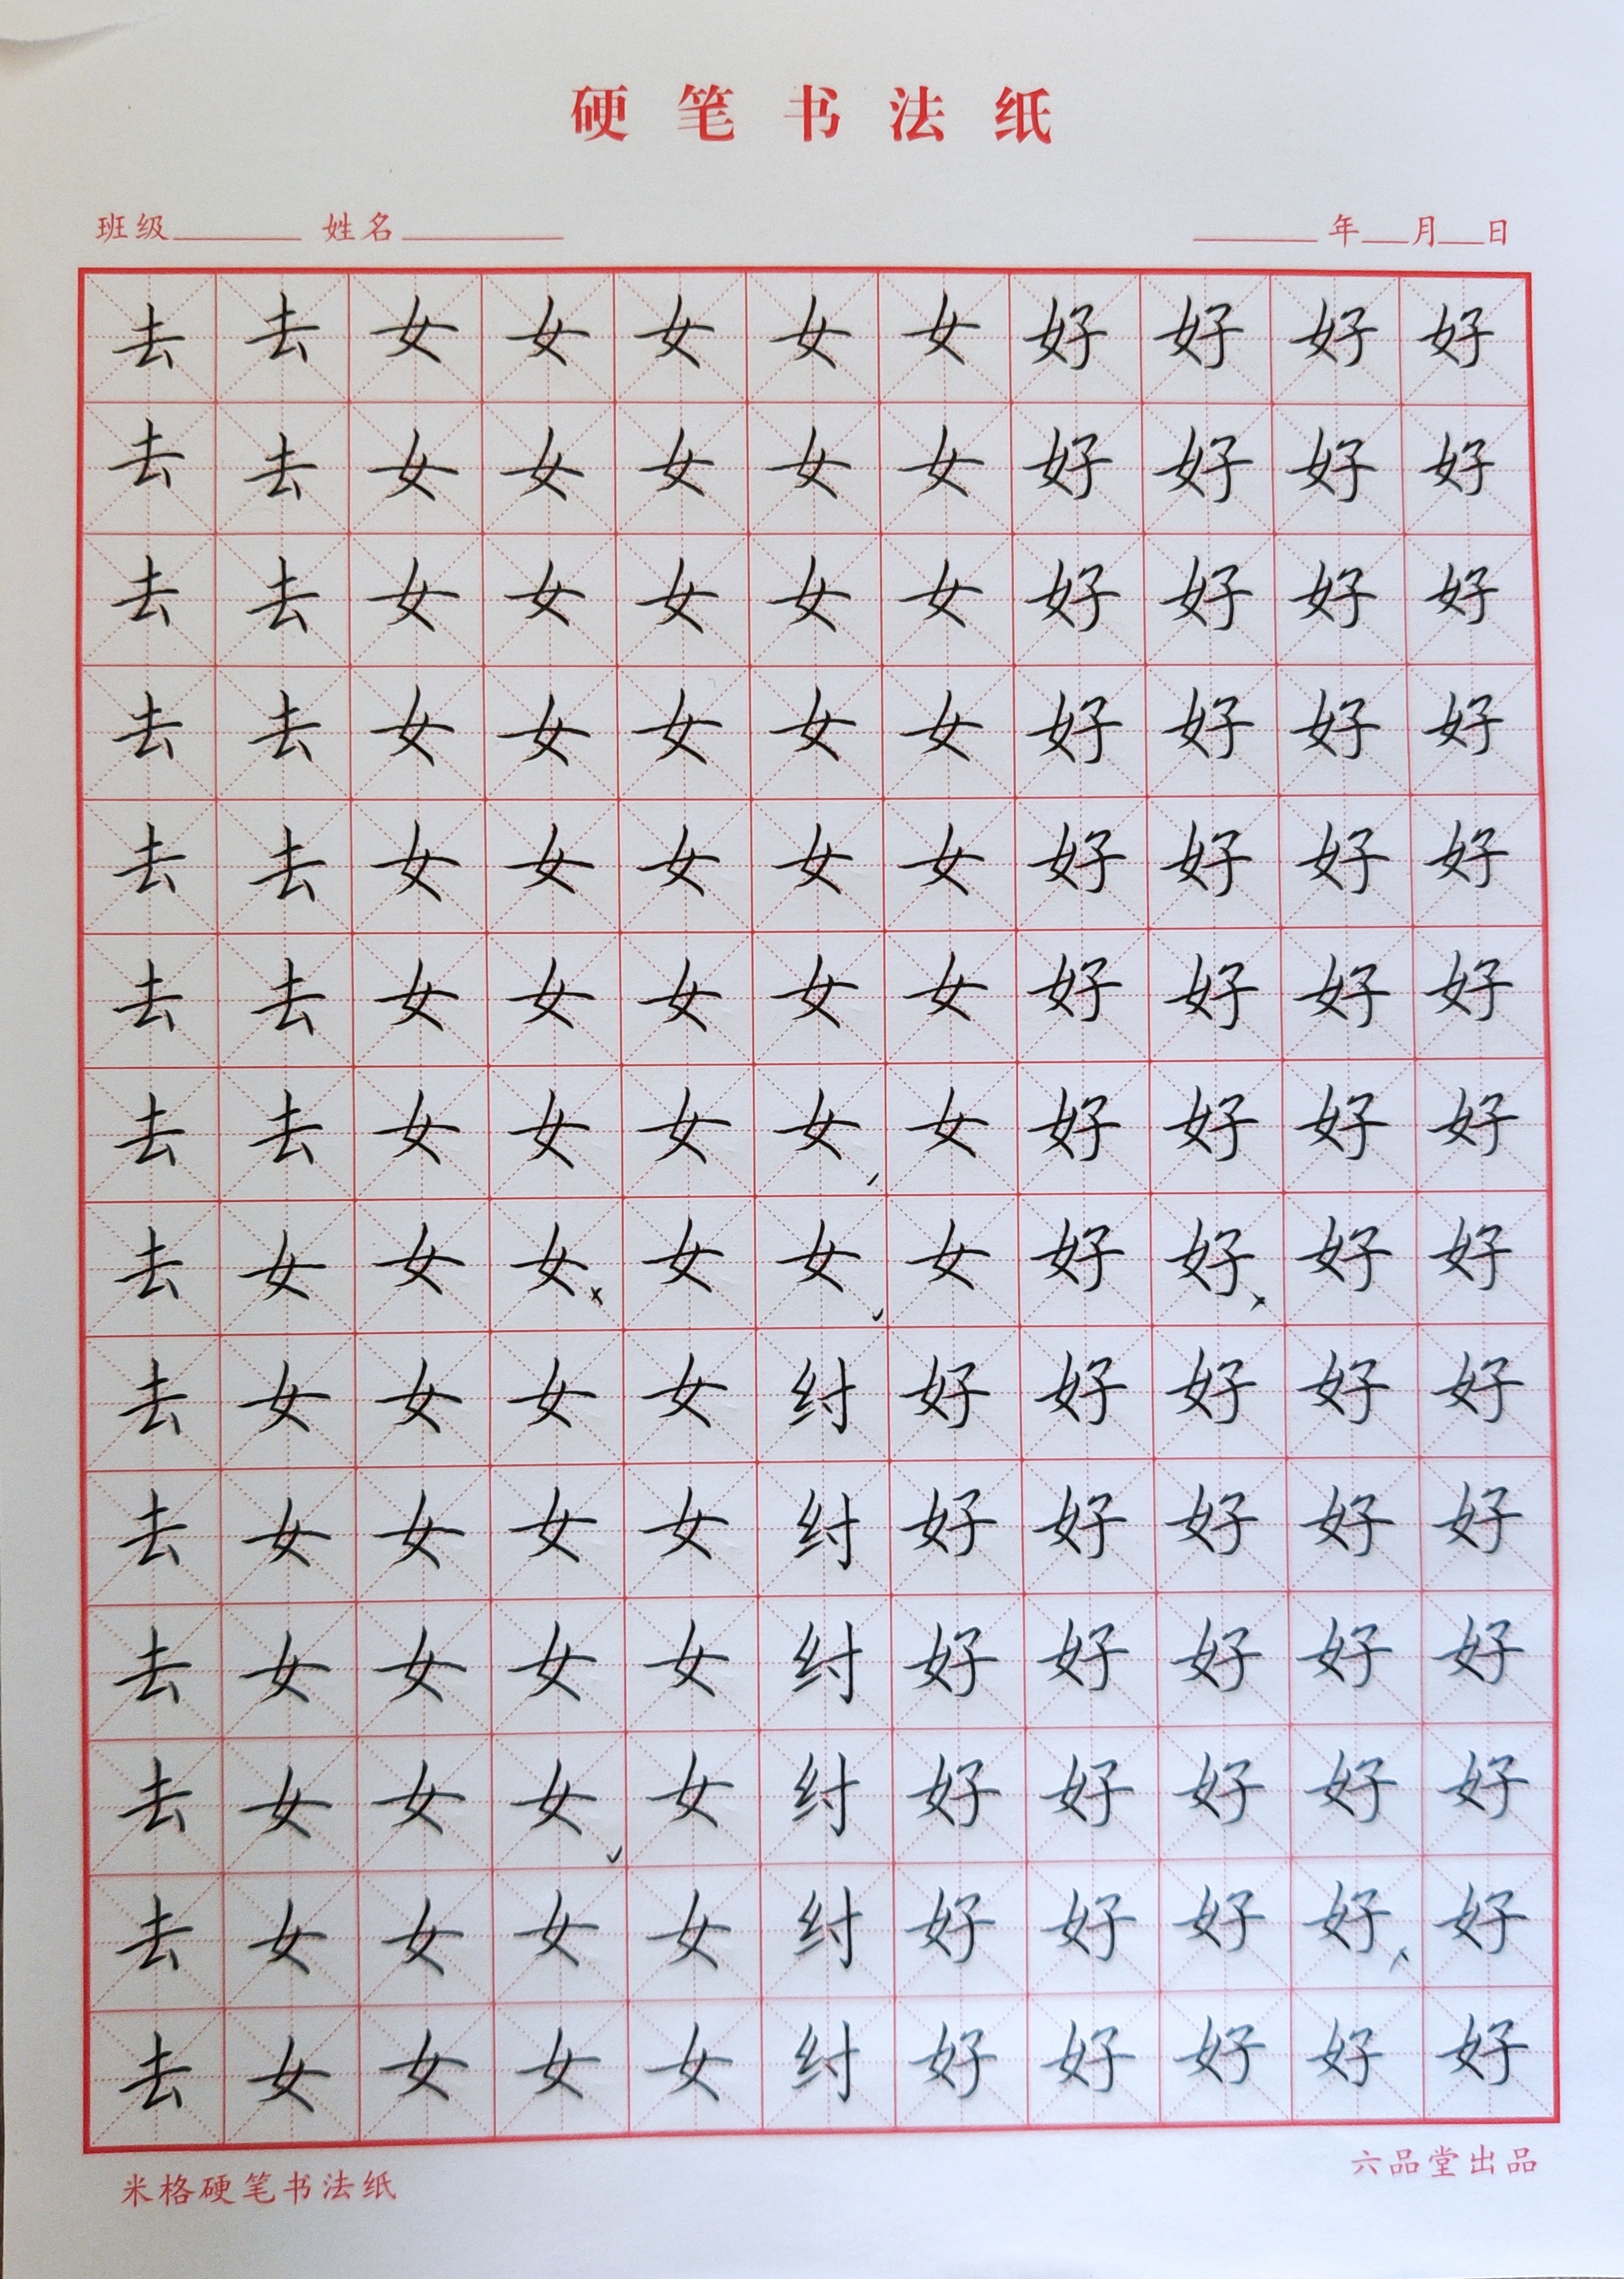 硬笔书法纸
班级 姓名 年 月 日
去去女女女女女好好好好
去去女女女女女好好好好
去去女女女女女好好好好
去去女女女女女好好好好
去去女女女女女好好好好
去去女女女女女好好好好
去去女女女女女好好好好
去女女女女女女好好好好
去女女女女纣好好好好好
去女女女女纣好好好好好
去女女女女纣好好好好好
去女女女女纣好好好好好
去女女女女纣好好好好好
去女女女女纣好好好好好
米格硬笔书法纸 六品堂出品